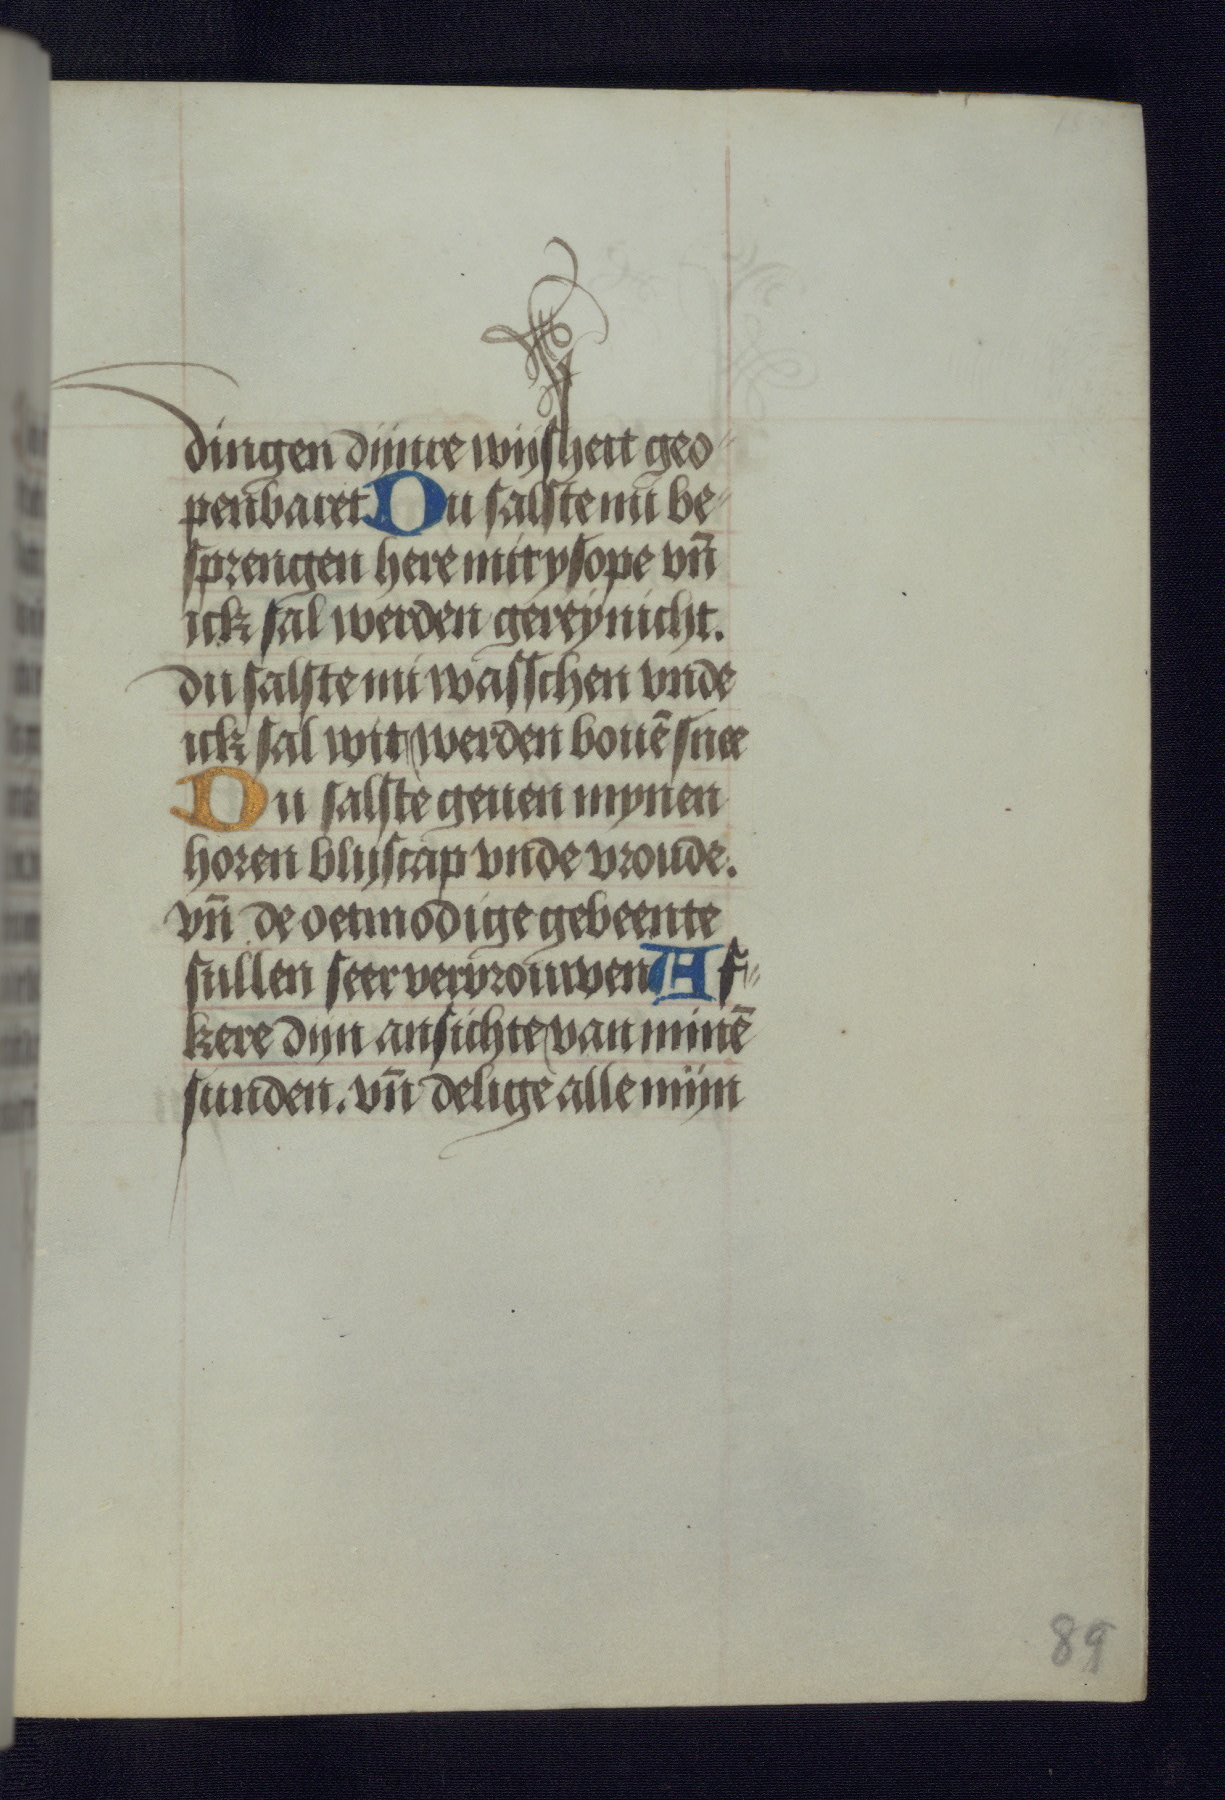 dingen dijnre wijsheit geo-
penbaret Du salste mi be-
sprengen here mit ysope vn̄
ick sal werden gereynicht.
du salste mi wasschen vnde
ick sal wit werden bouē snee
Du salste geuen mynen
horen blijscap vnde vroude.
vn̄ de oetmodige gebeente
sullen seer vervrouwen Af-
kere dijn ansichte van minē
sunden. vn̄ delige alle mijn
89